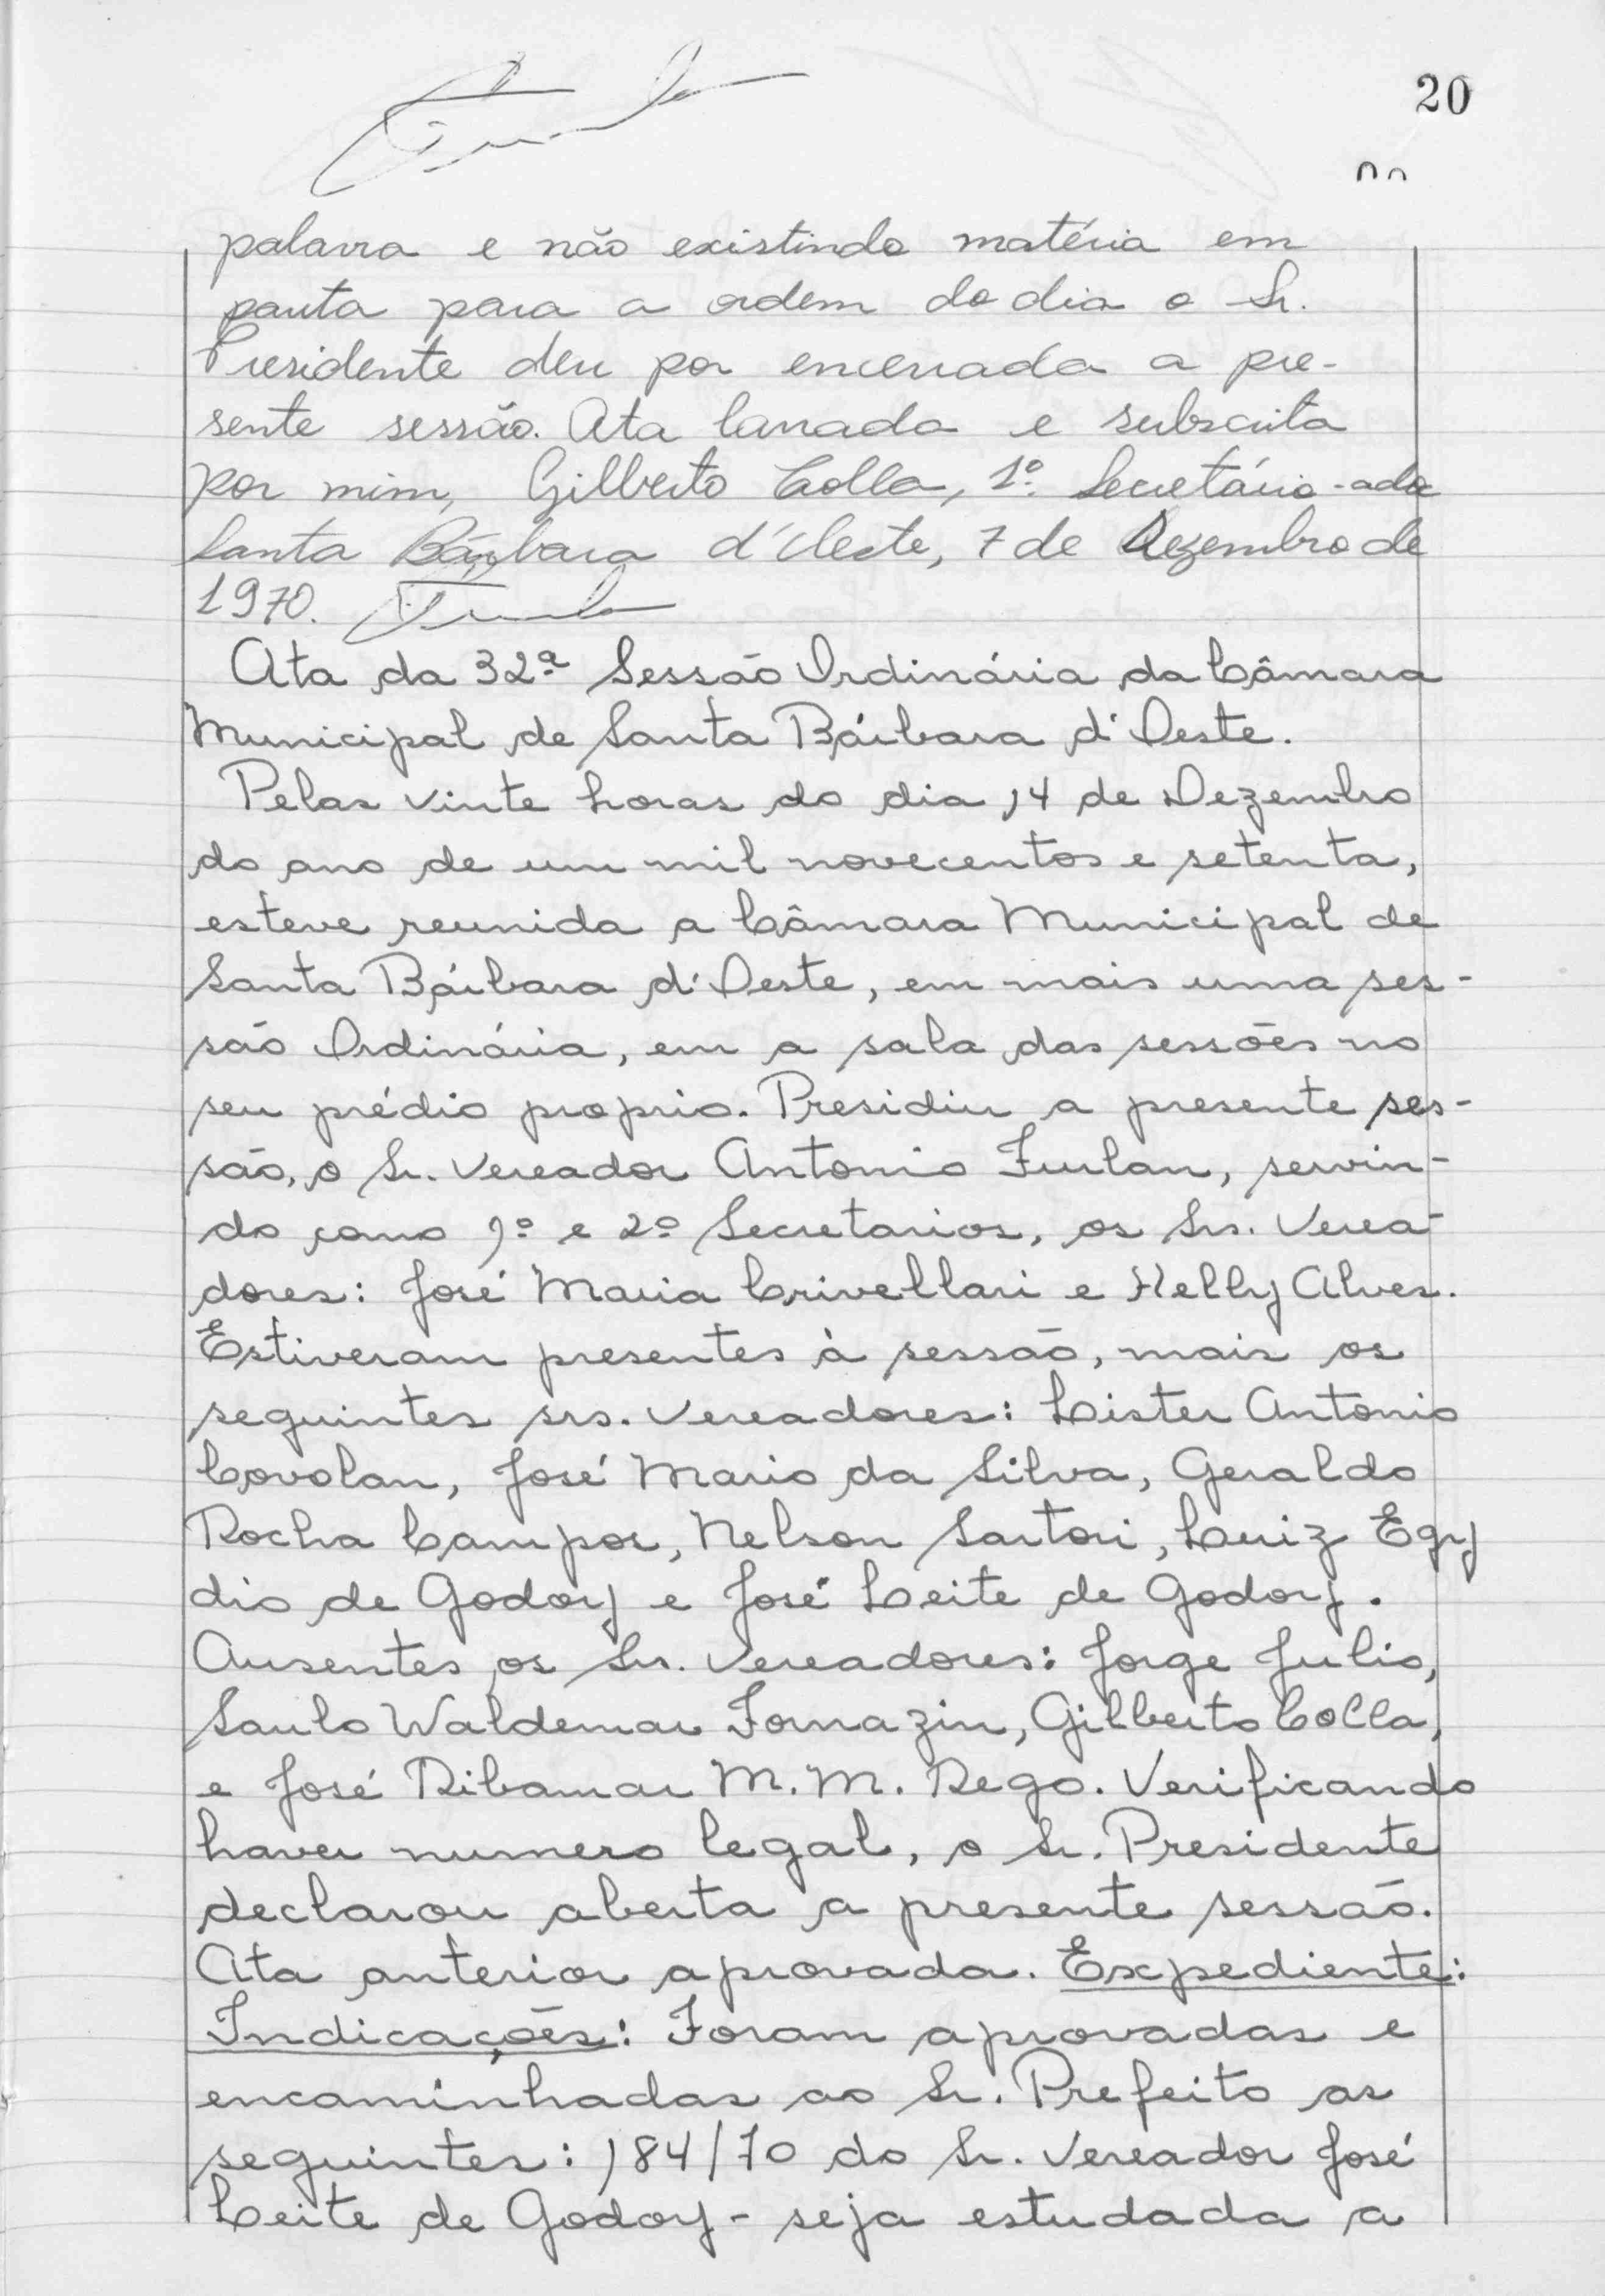 20
palavra e não existindo matéria em
pauta para a ordem do dia o Sr.
Presidente deu por encerrada a pre-
sente sessão. Ata lavrada e subscrita
por mim, Gilberto Colla, 1º. Secretário
Santa Bárbara d'Oeste, 7 de Dezembro de
1970.
Ata da 32ª Sessão Ordinária da Câmara
Municipal de Santa Bárbara d'Oeste.
Pelas vinte horas do dia 14 de Dezembro
do ano de um mil novecentos e setenta,
esteve reunida a Câmara Municipal de
Santa Bárbara d'Oeste, em mais uma ses-
são Ordinária, em a sala das sessões no
seu prédio proprio. Presidiu a presente ses-
são, o Sr. Vereador Antonio Furlan, servin-
do como 1º e 2º Secretarios, os Srs. Verea-
dores: José Maria Crivellari e Helly Alves.
Estiveram presentes à sessão, mais os
seguintes srs. Vereadores: Lister Antonio
Covolan, José Mario da Silva, Geraldo
Rocha Campos, Nelson Sartori, Luiz Egy
dio de Godoy e José Leite de Godoy.
Ausentes os Srs. Vereadores: Jorge Julio,
Saulo Waldemar Fornazin, Gilberto Colla,
e José Ribamar M. M. Rego. Verificando
haver numero legal, o Sr. Presidente
declarou aberta a presente sessão.
Ata anterior aprovada. Expediente:
Indicações: Foram aprovadas e
encaminhadas ao Sr. Prefeito as
seguintes: 184/70 do Sr. Vereador José
Leite de Godoy - seja estudada a